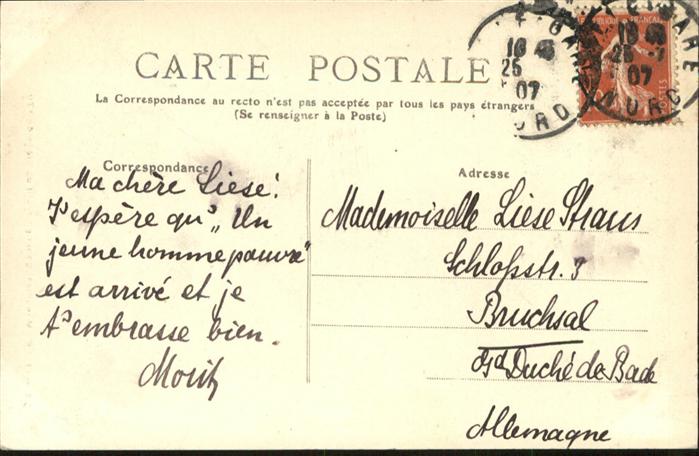 CARTE POSTALE
La Correspondance au recto n'est pas acceptée par tous les pays étrangers
(Se renseigner à la Poste)
Correspondance
Ma chère Liese!
J'espère qu' „Un
jeune homme pauvre"
est arrivé et je
t'embrasse bien.
Moritz
Adresse
Mademoiselle Liese Straus
Schloßstr. 3
Bruchsal
Gd Duché de Bade
Allemagne
GARE
NORD
25
07
25
07
POSTES